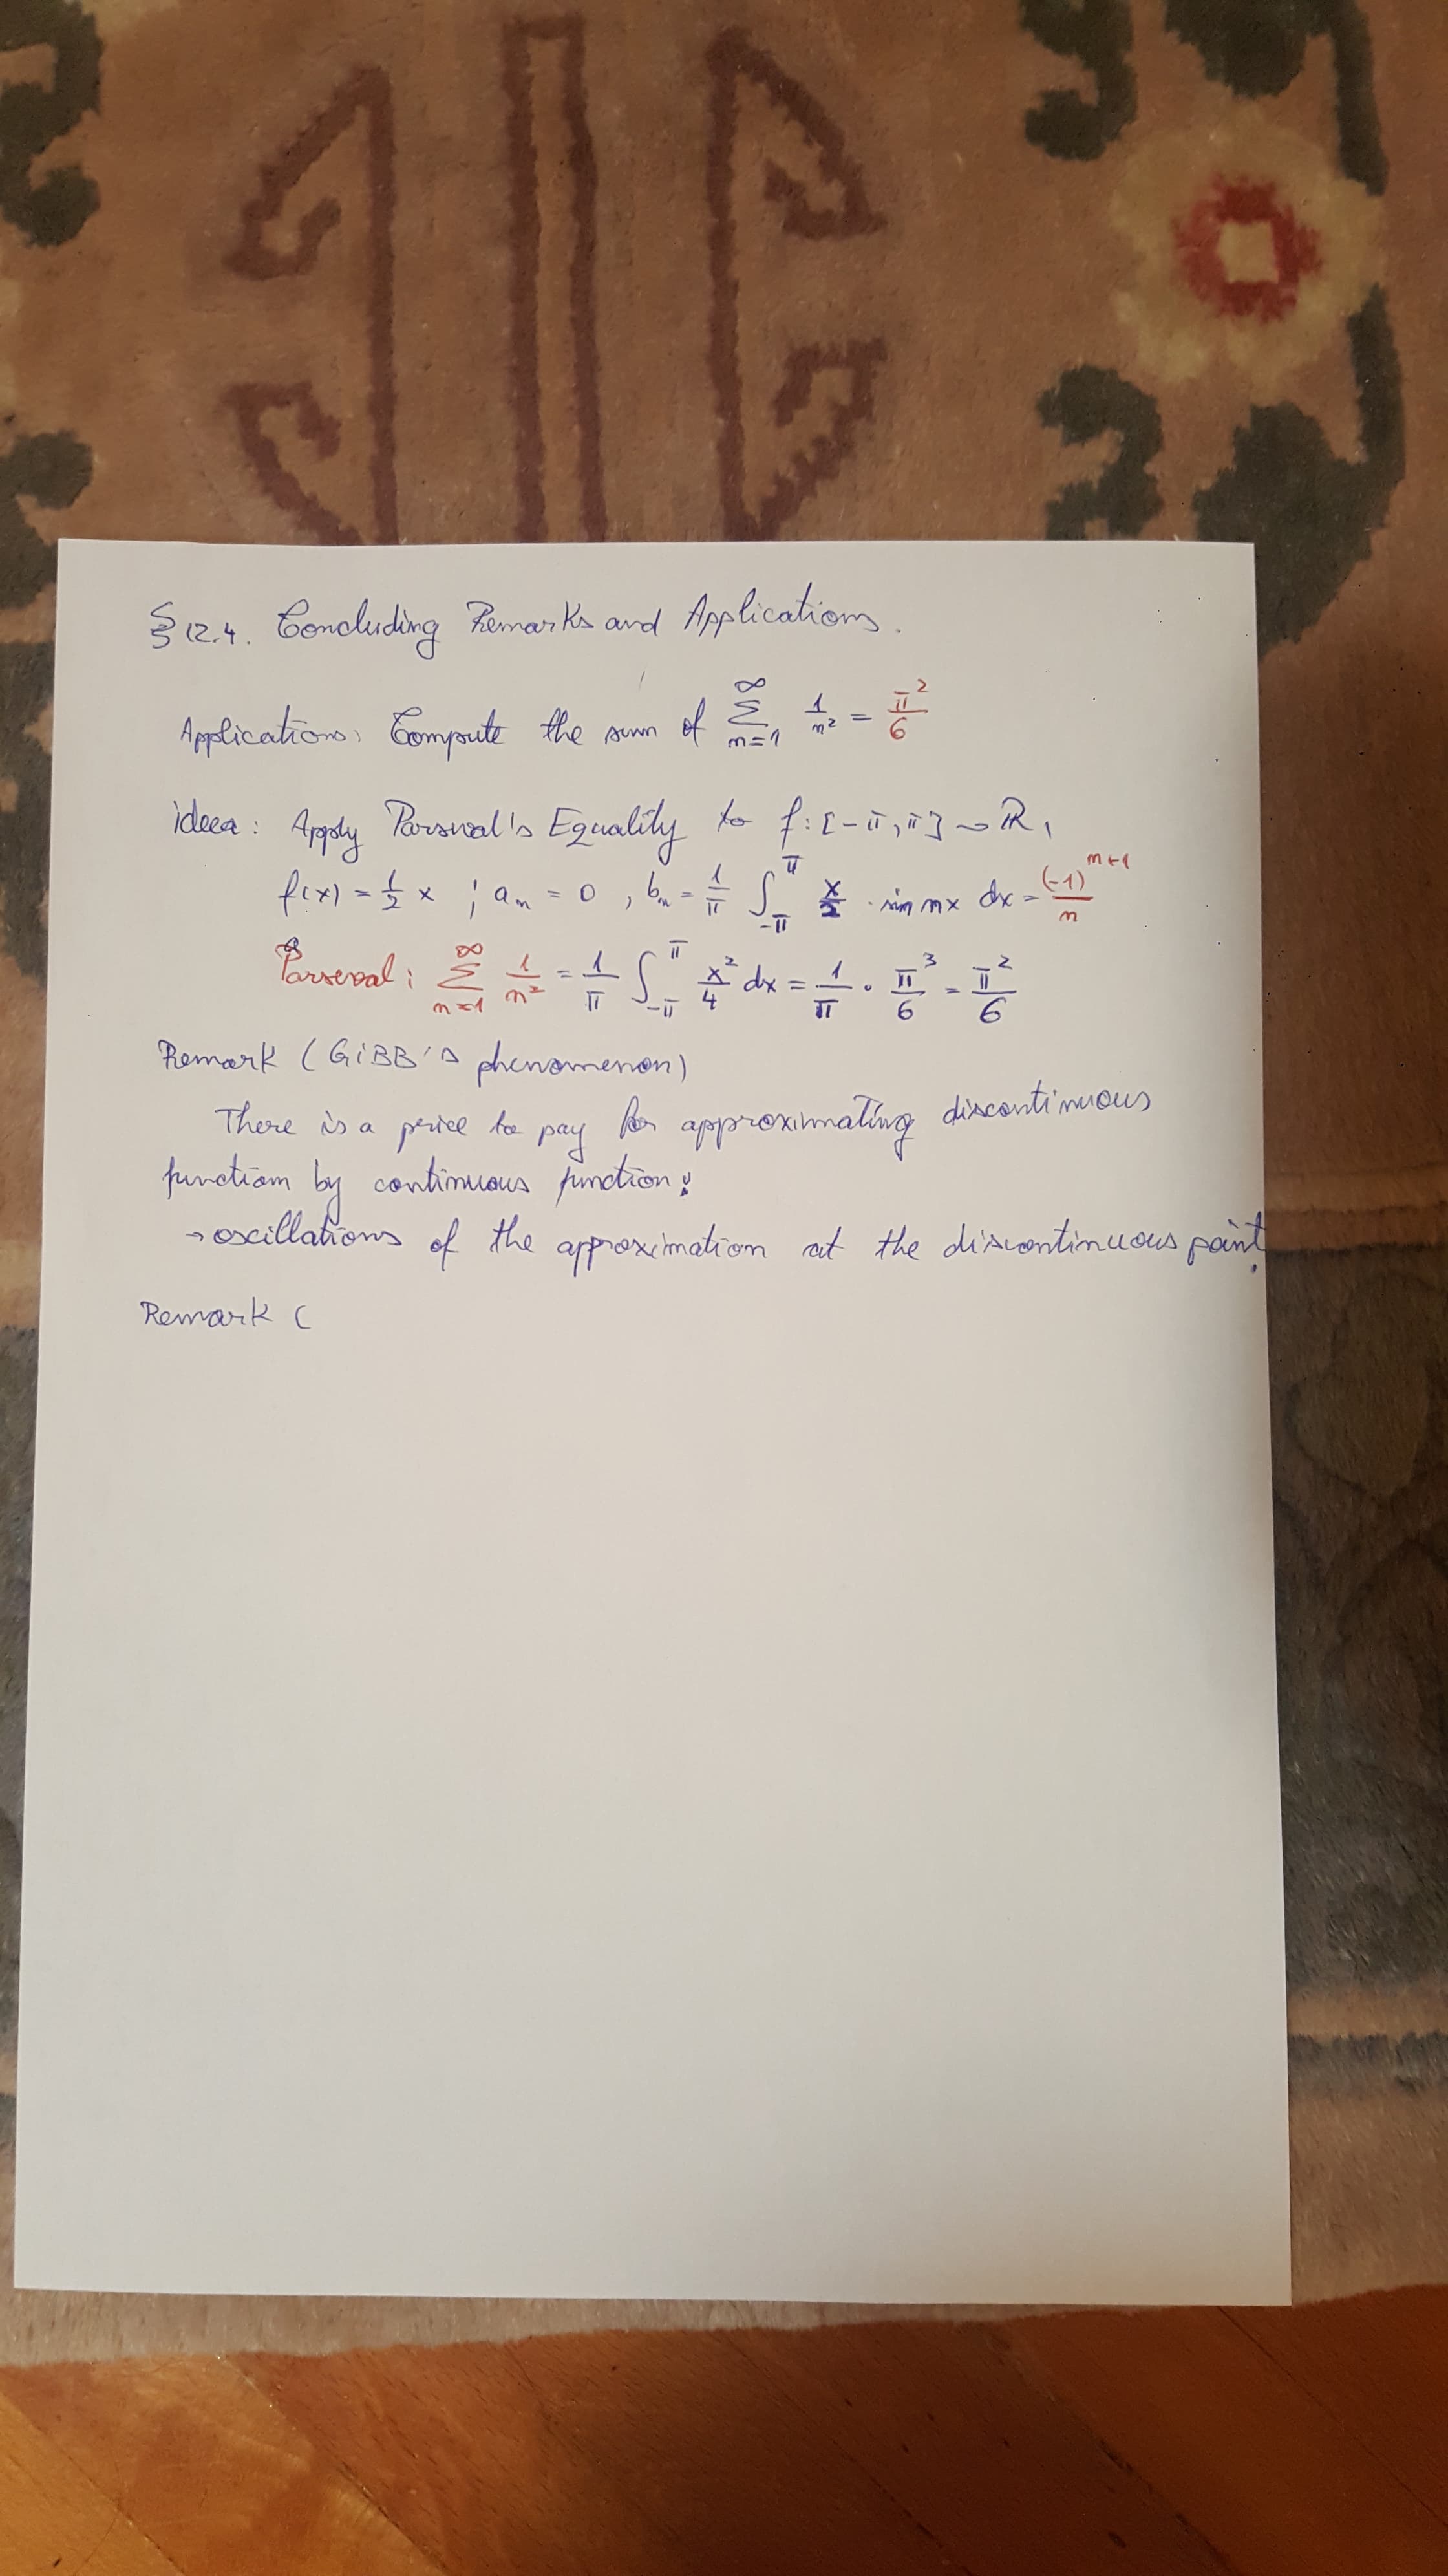 § 12.4. Concluding Remarks and Applications.
Applications: Compute the sum of ∑_{n=1}^{∞} 1/n² = π²/6
idea: Apply Parseval's Equality to f: [-π, π] → ℝ,
f(x) = 1/2 x ; aₙ = 0 , bₙ = 1/π ∫_{-π}^{π} x/2 · sin nx dx = (-1)^{n+1}/n
Parseval: ∑_{n=1}^{∞} 1/n² = 1/π ∫_{-π}^{π} x²/4 dx = 1/π · π³/6 = π²/6
Remark (GiBB's phenomenon)
There is a price to pay for approximating discontinuous
function by continuous function:
→ oscillations of the approximation at the discontinuous point.
Remark (